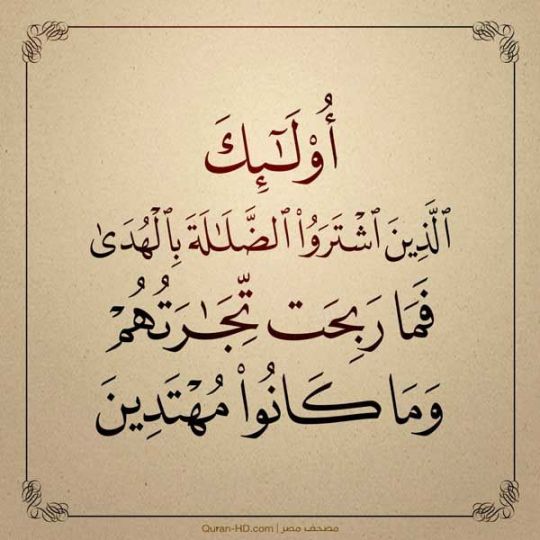 أُو۟لَـٰٓئِكَ
ٱلَّذِينَ ٱشْتَرَوُا۟ ٱلضَّلَـٰلَةَ بِٱلْهُدَىٰ
فَمَا رَبِحَت تِّجَـٰرَتُهُمْ
وَمَا كَانُوا۟ مُهْتَدِينَ
Quran-HD.com | مصحف مصر